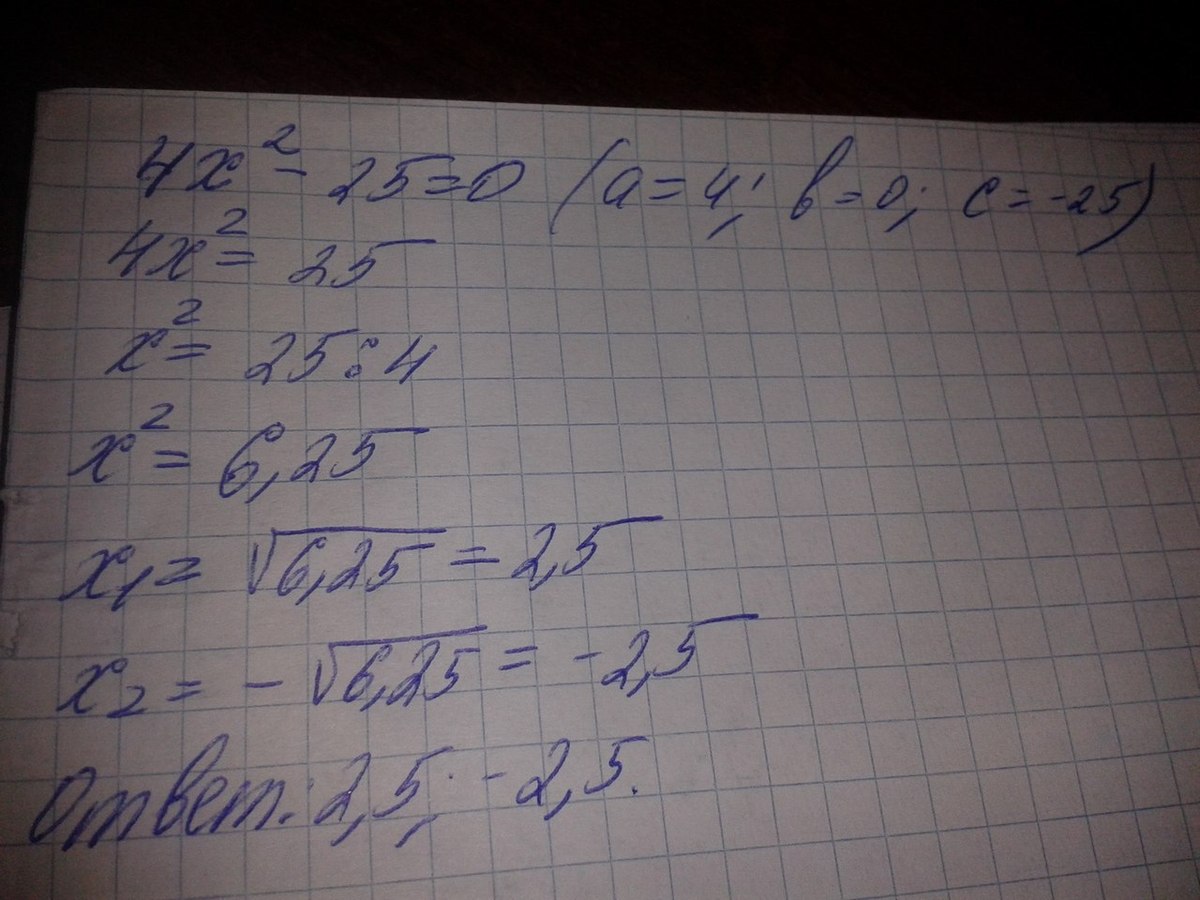 4x² - 25=0 (a=4; в=0; c=-25)
4x² = 25
x² = 25:4
x² = 6,25
x₁ = √6,25 = 2,5
x₂ = - √6,25 = -2,5
Ответ: 2,5; -2,5.